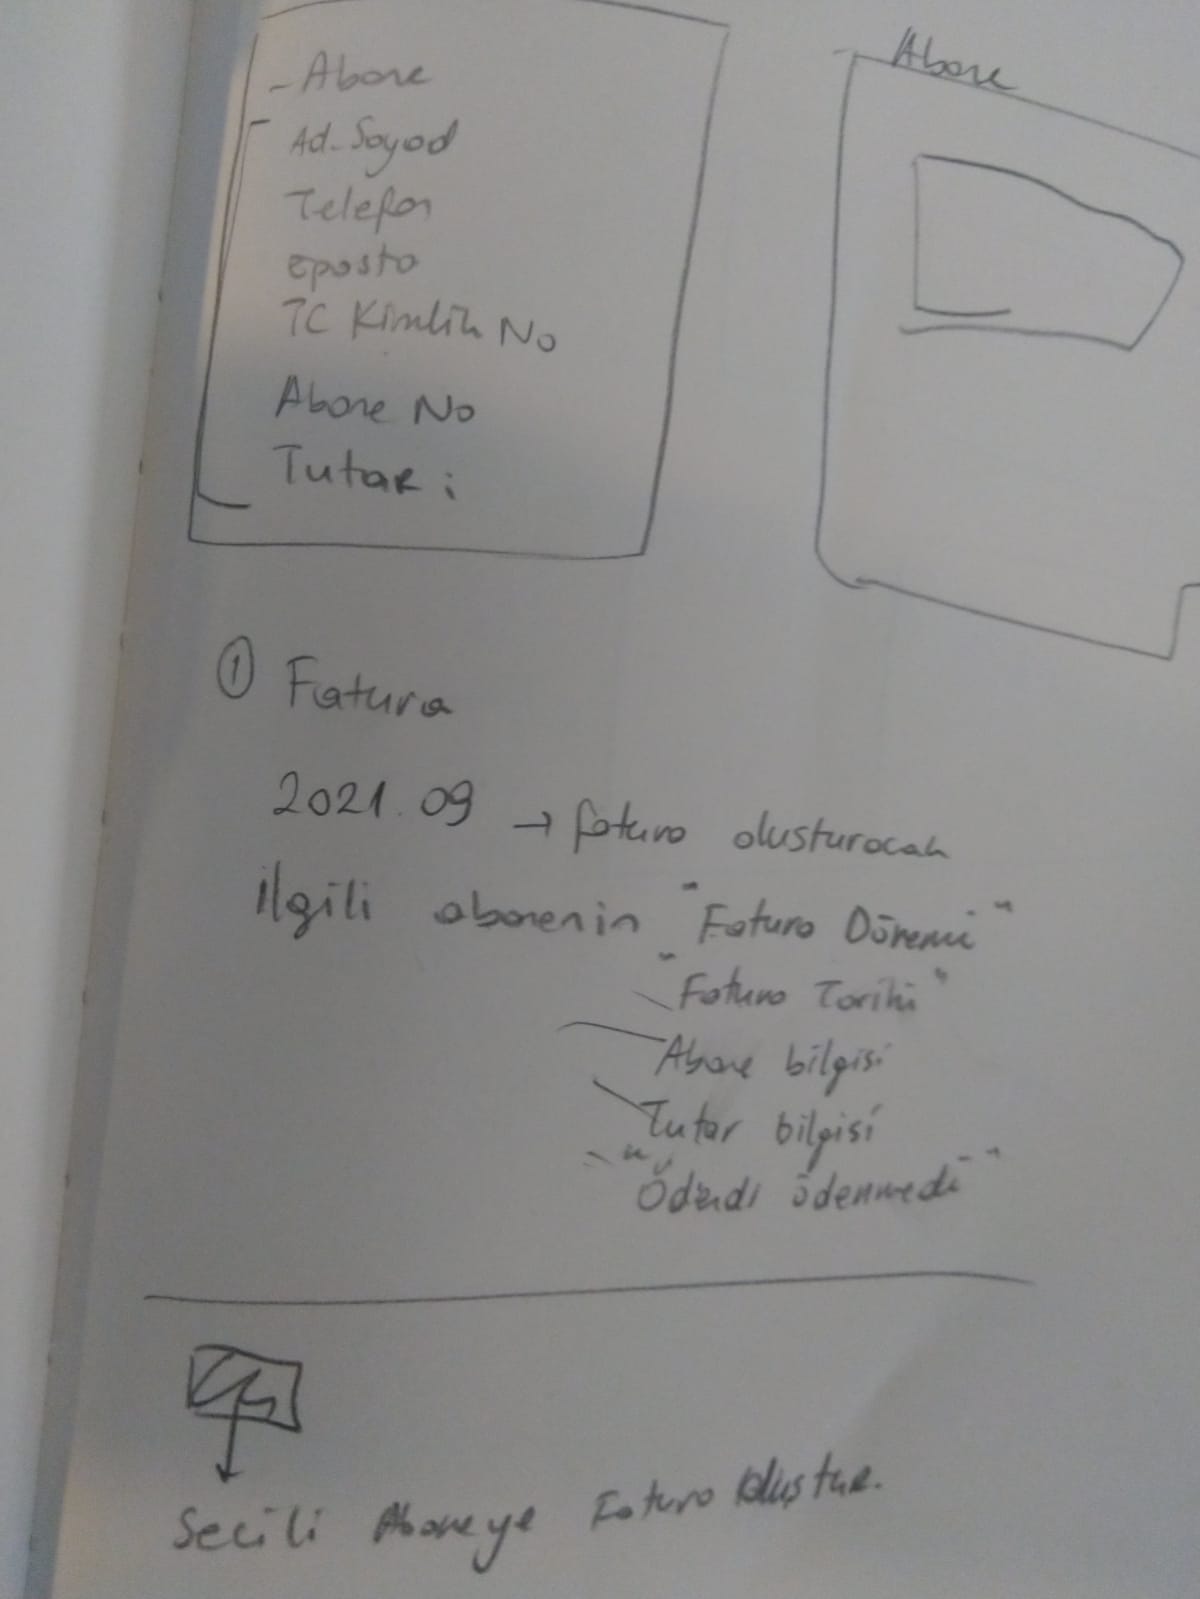 - Abone
Ad-Soyad
Telefon
eposta
TC Kimlik No
Abone No
Tutar :
Abone
① Fatura
2021.09 → fatura olusturacak
ilgili abonenin "Fatura Dönemi"
"Fatura Tarihi"
Abone bilgisi
Tutar bilgisi
"Ödendi ödenmedi"
Secili Aboneye Fatura oluştur.